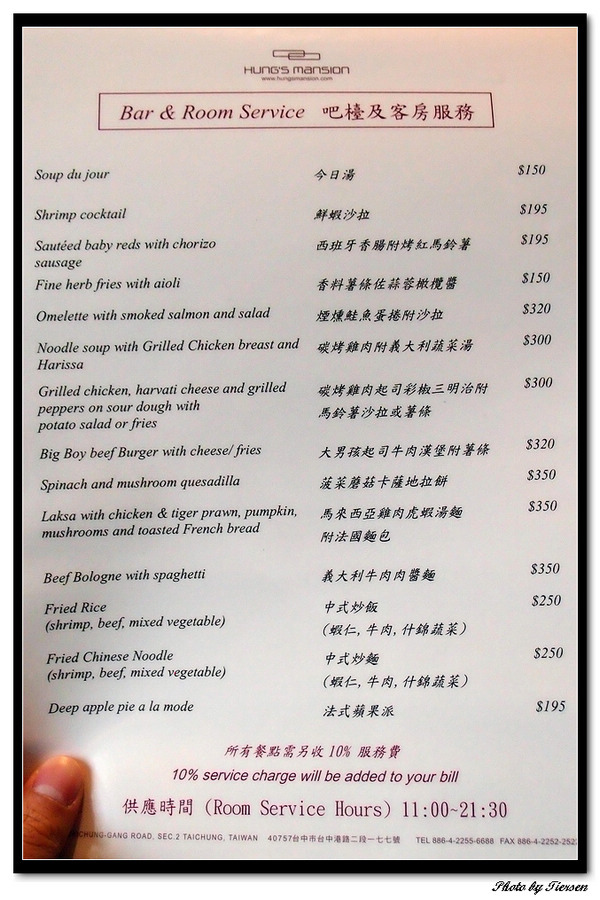 HUNG'S MANSION
www.hungsmansion.com
Bar & Room Service 吧檯及客房服務
Soup du jour 今日湯 $150
Shrimp cocktail 鮮蝦沙拉 $195
Sautéed baby reds with chorizo 西班牙香腸附烤紅馬鈴薯 $195
sausage
Fine herb fries with aioli 香料薯條佐蒜蓉橄欖醬 $150
Omelette with smoked salmon and salad 煙燻鮭魚蛋捲附沙拉 $320
Noodle soup with Grilled Chicken breast and 碳烤雞肉附義大利蔬菜湯 $300
Harissa
Grilled chicken, harvati cheese and grilled 碳烤雞肉起司彩椒三明治附 $300
peppers on sour dough with 馬鈴薯沙拉或薯條
potato salad or fries
Big Boy beef Burger with cheese/ fries 大男孩起司牛肉漢堡附薯條 $320
Spinach and mushroom quesadilla 菠菜蘑菇卡薩地拉餅 $350
Laksa with chicken & tiger prawn, pumpkin, 馬來西亞雞肉虎蝦湯麵 $350
mushrooms and toasted French bread 附法國麵包
Beef Bologne with spaghetti 義大利牛肉肉醬麵 $350
Fried Rice 中式炒飯 $250
(shrimp, beef, mixed vegetable) (蝦仁, 牛肉, 什錦蔬菜)
Fried Chinese Noodle 中式炒麵 $250
(shrimp, beef, mixed vegetable) (蝦仁, 牛肉, 什錦蔬菜)
Deep apple pie a la mode 法式蘋果派 $195
所有餐點需另收 10% 服務費
10% service charge will be added to your bill
供應時間 (Room Service Hours) 11:00~21:30
CHUNG-GANG ROAD, SEC.2 TAICHUNG, TAIWAN 40757台中市台中港路二段一七七號 TEL 886-4-2255-6688 FAX 886-4-2252-252
Photo by Tiersen